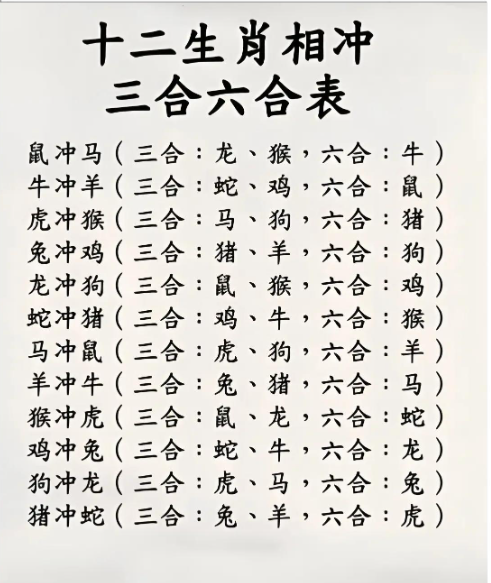 十二生肖相冲
三合六合表
鼠冲马(三合:龙、猴,六合:牛)
牛冲羊(三合:蛇、鸡,六合:鼠)
虎冲猴(三合:马、狗,六合:猪)
兔冲鸡(三合:猪、羊,六合:狗)
龙冲狗(三合:鼠、猴,六合:鸡)
蛇冲猪(三合:鸡、牛,六合:猴)
马冲鼠(三合:虎、狗,六合:羊)
羊冲牛(三合:兔、猪,六合:马)
猴冲虎(三合:鼠、龙,六合:蛇)
鸡冲兔(三合:蛇、牛,六合:龙)
狗冲龙(三合:虎、马,六合:兔)
猪冲蛇(三合:兔、羊,六合:虎)